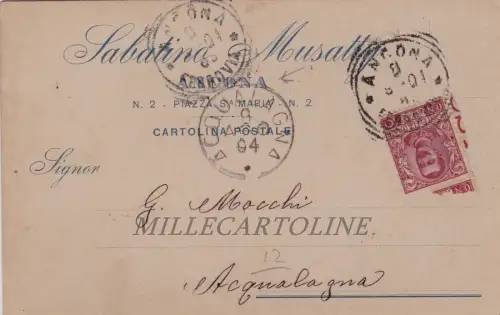 Sabatino Musatt
ANCONA
N. 2 - PIAZZA S. MARIA - N. 2
CARTOLINA POSTALE
ANCONA
ANCONA
ACQUALAGNA
9
04
Signor
G. Mocchi
MILLECARTOLINE.
12
Acqualagna